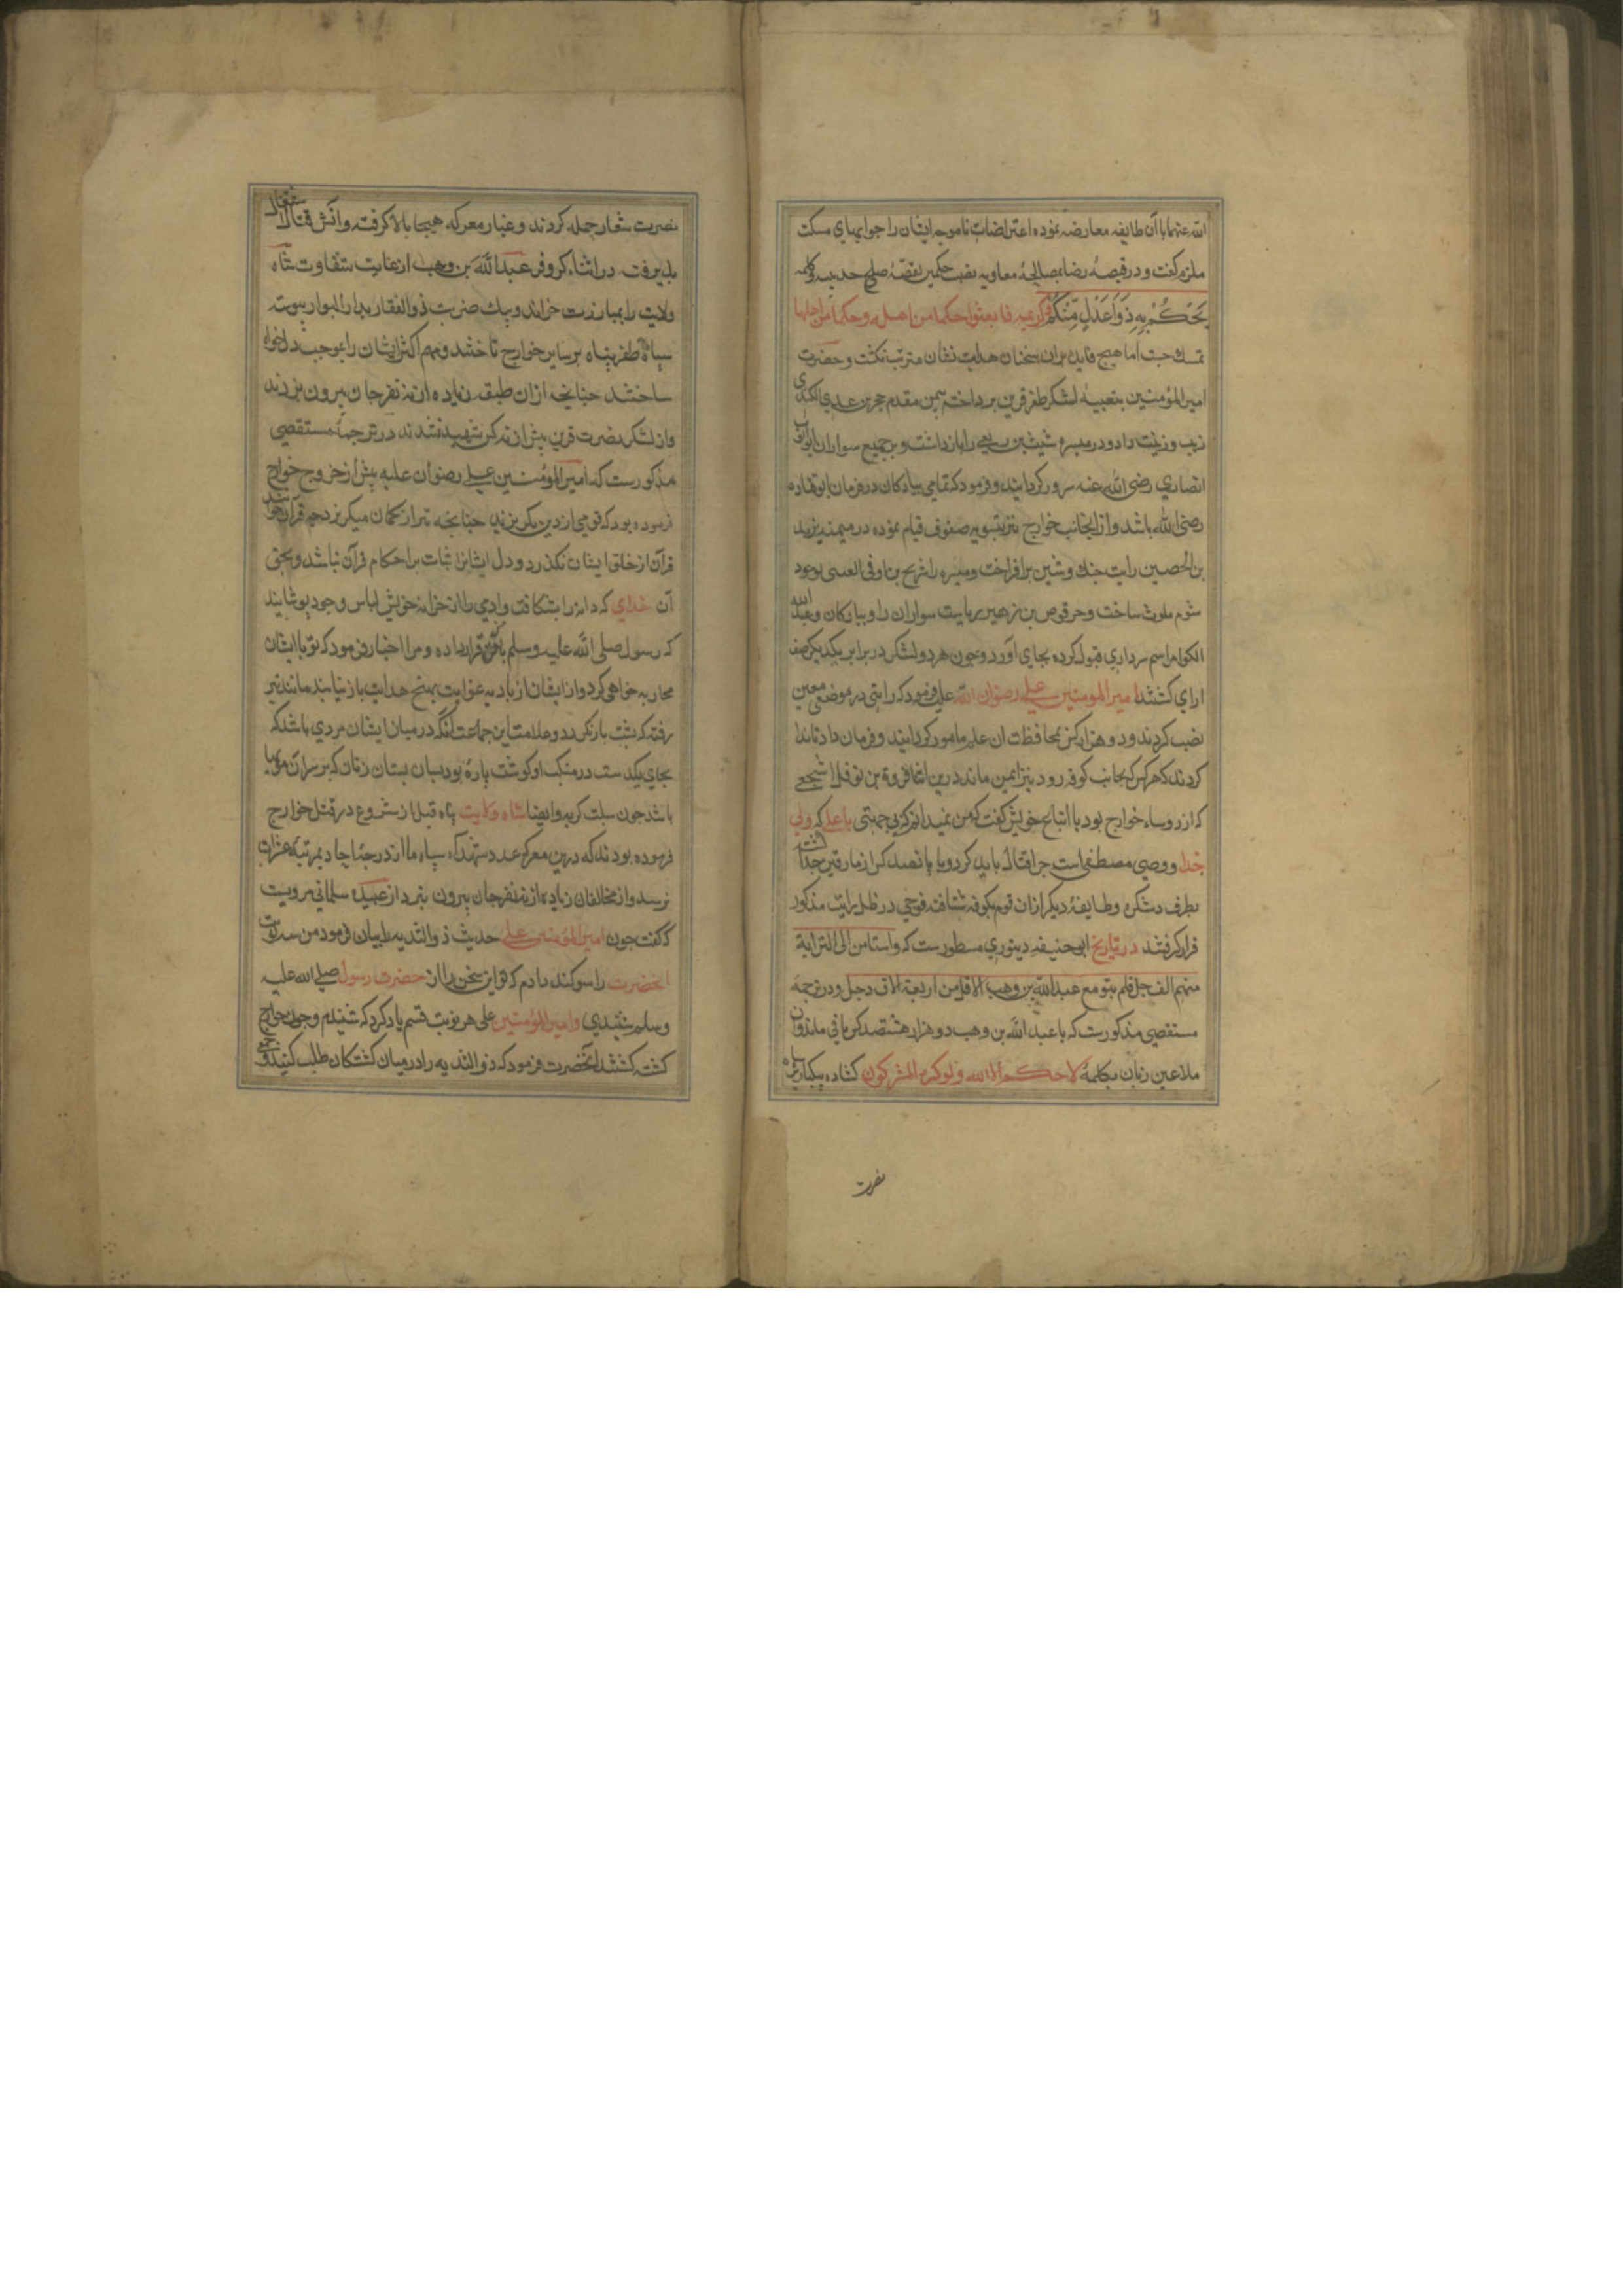 الله عنهما با آن طایفه معارضه نموده اعتراضات ناموجه ایشان را جوابهای مسکت
ملزم گفت و در قصهٔ رضا بمصالحهٔ معاویه نصب حکمین بقصهٔ صلح حدیبیه و کلمه
یَحْکُمُ بِهِ ذَوَا عَدْلٍ مِّنْکُمْ و کریمه فابعثوا حکما من اهله و حکما من اهلها
تمسک جست اما هیچ فایده بران سخنان هدایت نشان مترتب نکشت و حضرت
امیر المؤمنین بتعبیهٔ لشکر ظفر قرین پرداخته میمن مقدم حجر بن عدی الکندی
زیب و زینت داد و در میسره شیث بن ربعی را بازداشت و بر جمیع سواران ابو ایوب
انصاری رضی الله عنه سرور کردانید و فرمود که تمامی پیادکان در فرمان ابو قتاده
رضی الله باشد و از انجانب خوارج نیز بتسویه صفوف قیام نموده در میمنه یزید
بن الحصین رایت جنك و شین برافراخت و میسره را شریح بن اوفی العبسی بوجود
شوم ملوث ساخت و حرقوص بن زهیر ریاست سواران را و پیادکان و عبد الله
الکوا مراسم سرداری قبول کرده بجای آورد و چون هر دو لشکر در برابر یکدیکر صف
ارای کشتند امیر المومنین علی رضوان الله علیه فرمود که رایتی در موضعی معین
نصب کردند و دو هزار کس بمحافظت ان علم مامور کردانیدند و فرمان داد تا ندا
کردند که هر کس که بجانب کوفه رود نیز ایمن ماند درین اثنا فروة بن نوفل اشجعی
که از روساء خوارج بود با اتباع خویش کفت که من نمیدانم که بچه جهتی با علی که ولی
خدا و وصی مصطفی است چرا قتال باید کرد و با پانصد کس از مارقین جدا کشته
بطرف دسکره و طایفهٔ دیکر ازان قوم بکوفه شتافته فوجی در ظل رایت مذکور
قرار کرفتند در تاریخ ابو حنیفه دینوری مسطورست که واستامن الی الرایة
منهم الف رجل فلم یبق مع عبد الله بن وهب الا اقل من اربعة الاف رجل و در ترجمه
مستقصی مذکورست که با عبد الله بن وهب دو هزار هشتصد کس باقی ماند و ان
ملاعین زبان بکلمهٔ لا حکم الا الله و لو کره المشرکون کشاده بیکبار بر سپاه
نصرت
نصرت شعار حمله کردند و غبار معرکه هیجا بالا کرفته و آتش قتال اشتعال
پذیرفت در اثناء کر و فر عبد الله بن وهب از غایت شقاوت شاه
ولایت را بمبارزت خواند و بیك ضربت ذو الفقار بدار البوار پیوسته
سپاه ظفر پناه بر سایر خوارج تاختند و مهم اکثر ایشان را بموجب دلخواه
ساختند چنانچه ازان طبقه زیاده از نه نفر جان بیرون نبردند
و از لشکر نصرت قرین بیش از نه کس شهید نشدند در ترجمهٔ مستقصی
مذکورست که امیر المؤمنین علی رضوان علیه پیش از خروج خوارج
فرموده بود که قومی از دین بکریزند چنانچه تیر از کمان میکریزد چه قرآن خوانند
قرآن از حلق ایشان نکذرد و دل ایشانرا ثبات بر احکام قرآن نباشد و بحق
آن خدای که دانه را بشکافت و آدمی را از خزانه خویش لباس وجود پوشانید
که رسول صلی الله علیه وسلم با من قرار داده و مرا اخبار فرمود که تو با ایشان
محاربه خواهی کرد و از ایشان از بادیه غوایت بمنهج هدایت باز نیایند مانند تیر
رفته که بشت باز نکردد و علامت این جماعت انکه در میان ایشان مردی باشد که
بجای یکدست در منکب او کوشت پارهٔ بود بسان پستان زنان که بر سر آن مویها
باشد چون سبلت کربه و ایضا شاه ولایت پناه قبل از شروع در قتل خوارج
فرموده بودند که درین معرکه عدد شهداء سپاه ما از درجهٔ احاد بمرتبهٔ عشرات
نرسد و از مخالفان زیاده از نه نفر جان بیرون نبرد از عبیده سلمانی مرویست
که کفت چون امیر المؤمنین علی حدیث ذو الثدیه را بیان فرمود من سه نوبت
انحضرت را سوکند دادم که تو این سخن را از حضرت رسول صلی الله علیه
وسلم شنیدی و امیر المؤمنین علی هر نوبت قسم یاد کرد که شنیدم و چون خوارج
کشته کشتند انحضرت فرمود که ذو الثدیه را در میان کشتکان طلب کنید و